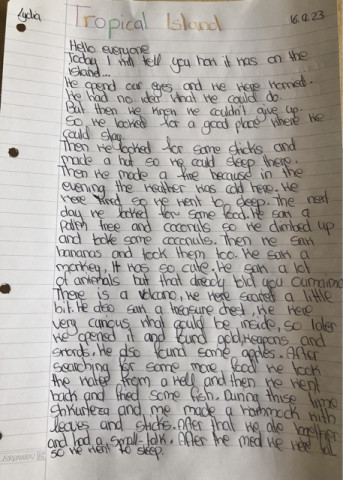 Lydia
Tropical Island
16.2.23
Hello everyone
Today I will tell you how it was on the
island...
We opend our eyes and we were worried.
We had no idea what we could do.
But then we knew we couldn't give up.
So we looked for a good place where we
could stay.
Then we looked for some sticks and
made a hut so we could sleep there.
Then we made a fire because in the
evening the weather was cold here. We
were tired so we went to sleep. The next
day we looked for some food. We saw a
palm tree and coconuts so we climbed up
and took some coconuts. Then we saw
bananas and took them too. We saw a
monkey, it was so cute. We saw a lot
of animals but that already told you
There is a volcano, we were scared a little
bit. We also saw a treasure chest, we were
very curious what could be inside, so later
we opened it and found gold, weapons and
swords. We also found some apples. After
searching for some more food we took
the water from a well and then we went
back and fried some fish. During this time
and me made a hammock with
leaves and sticks. After that we ate together
and had a small-talk. After the meal we were
so we went to sleep.